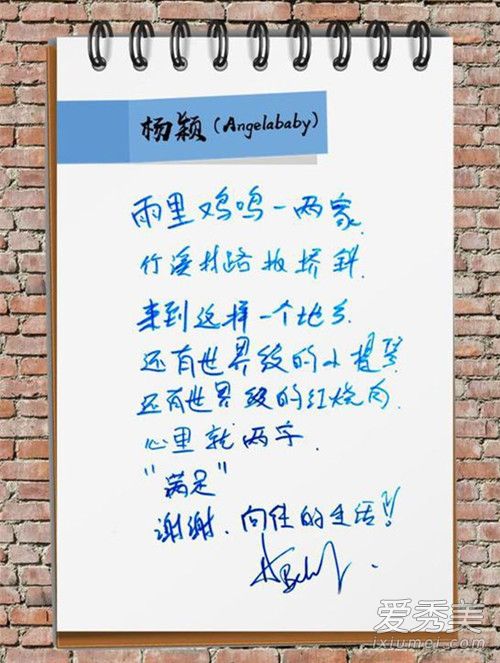 杨颖(Angelababy)
雨里鸡鸣一两家
竹溪村路板桥斜.
来到这样一个地方
还有世界级的小提琴
还有世界级的红烧肉.
心里就两字.
“满足”
谢谢.向往的生活!!
爱秀美
ixiumei.com